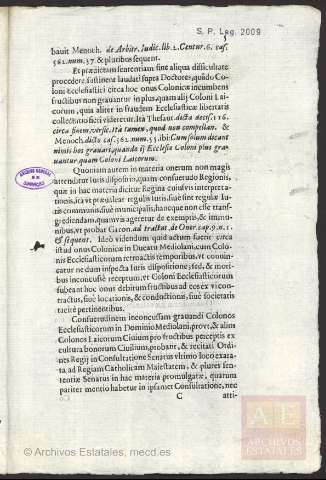 S. P. Leg. 2009
5
bauit Menoch. de Arbitr. Iudic. lib. 2. Centur. 6. cas.
562. num. 37. & pluribus sequent.
Et prædictam sententiam sine aliqua difficultate
procedere, sustinent laudati supra Doctores, quãdo Co
loni Ecclesiastici circa hoc onus Colonicæ incumbens
fructibus non grauantur in plus, quam alij Coloni Lai-
corum, quia aliter in fraudem Ecclesiasticæ libertatis
collectatio fieri videretur. Ita Thesaur. dicta decis. 116.
circa finem, versic. Ita tamen, quod non compellan. &
Menoch. dicto cas. 562. num. 55. ibi: Cum solum dicant
minus hos grauari, quando ij Ecclesiæ Coloni plus gra-
uantur quam Coloni Laicorum.
Quoniam autem in materia onerum non magis
attenditur Iuris dispositio, quam consuetudo Regionis,
quæ in hac materia dicitur Regina cuiusvis interpreta-
tionis, ita vt præualeat regulis Iuris, siue sint regulæ Iu-
ris communis, siue municipalis, hancque non esse trans-
grediendam, quamvis ageretur de exemptis, & immu-
nibus, vt probat Garon. ad tractat. de Oner. cap. 9. n. 1.
& sequent. Ideò videndum quid actum fuerit circa
istud onus Colonicæ in Ducatu Mediolani, cum Colo-
nis Ecclesiasticorum retroactis temporibus, vt conuin-
catur ne dum inspecta Iuris dispositione, sed, & mori-
bus inconcussè receptum, vt Coloni Ecclesiasticorum
subeant hoc onus debitum fructibus ad eos ex vi con-
tractus, siuè locationis, & conductionis, siuè societatis
pertinentibus.
Consuetudinem inconcussam grauandi Colonos
Ecclesiasticorum in Dominio Mediolani, prout, & alios
Colonos Laicorum Ciuium pro fructibus perceptis ex
cultura bonorum Ciuilium, probant, & recitati Ordi-
nes Regij in Consultatione Senatus vltimo loco exara-
ta ad Regiam Catholicam Maiestatem, & plures sen-
tentiæ Senatus in hac materia promulgatæ, quarum
pariter mentio habetur in ipsamet Consultatione, nec
C atti-
ARCHIVO GENERAL
DE
SIMANCAS
AE
ARCHIVOS
ESTATALES
© Archivos Estatales, mecd.es